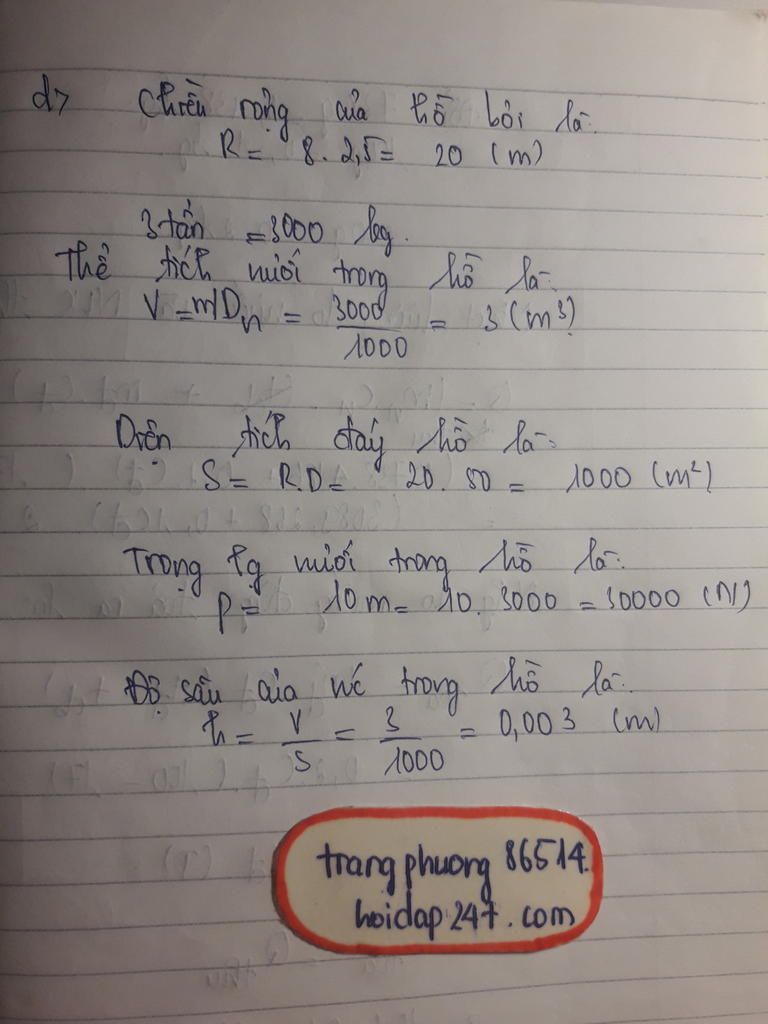 d> Chiều rộng của hồ bơi là:
R = 8. 2,5 = 20 (m)
3 tấn = 3000 kg.
Thể tích muối trong hồ là:
V = m/Dn = 3000/1000 = 3 (m³)
Diện tích đáy hồ là:
S = R.D = 20. 50 = 1000 (m²)
Trọng lg muối trong hồ là:
P = 10m = 10. 3000 = 30000 (N)
Độ sâu của nc trong hồ là:
h = V/S = 3/1000 = 0,003 (m)
trangphuong 86514.
hoidap247.com